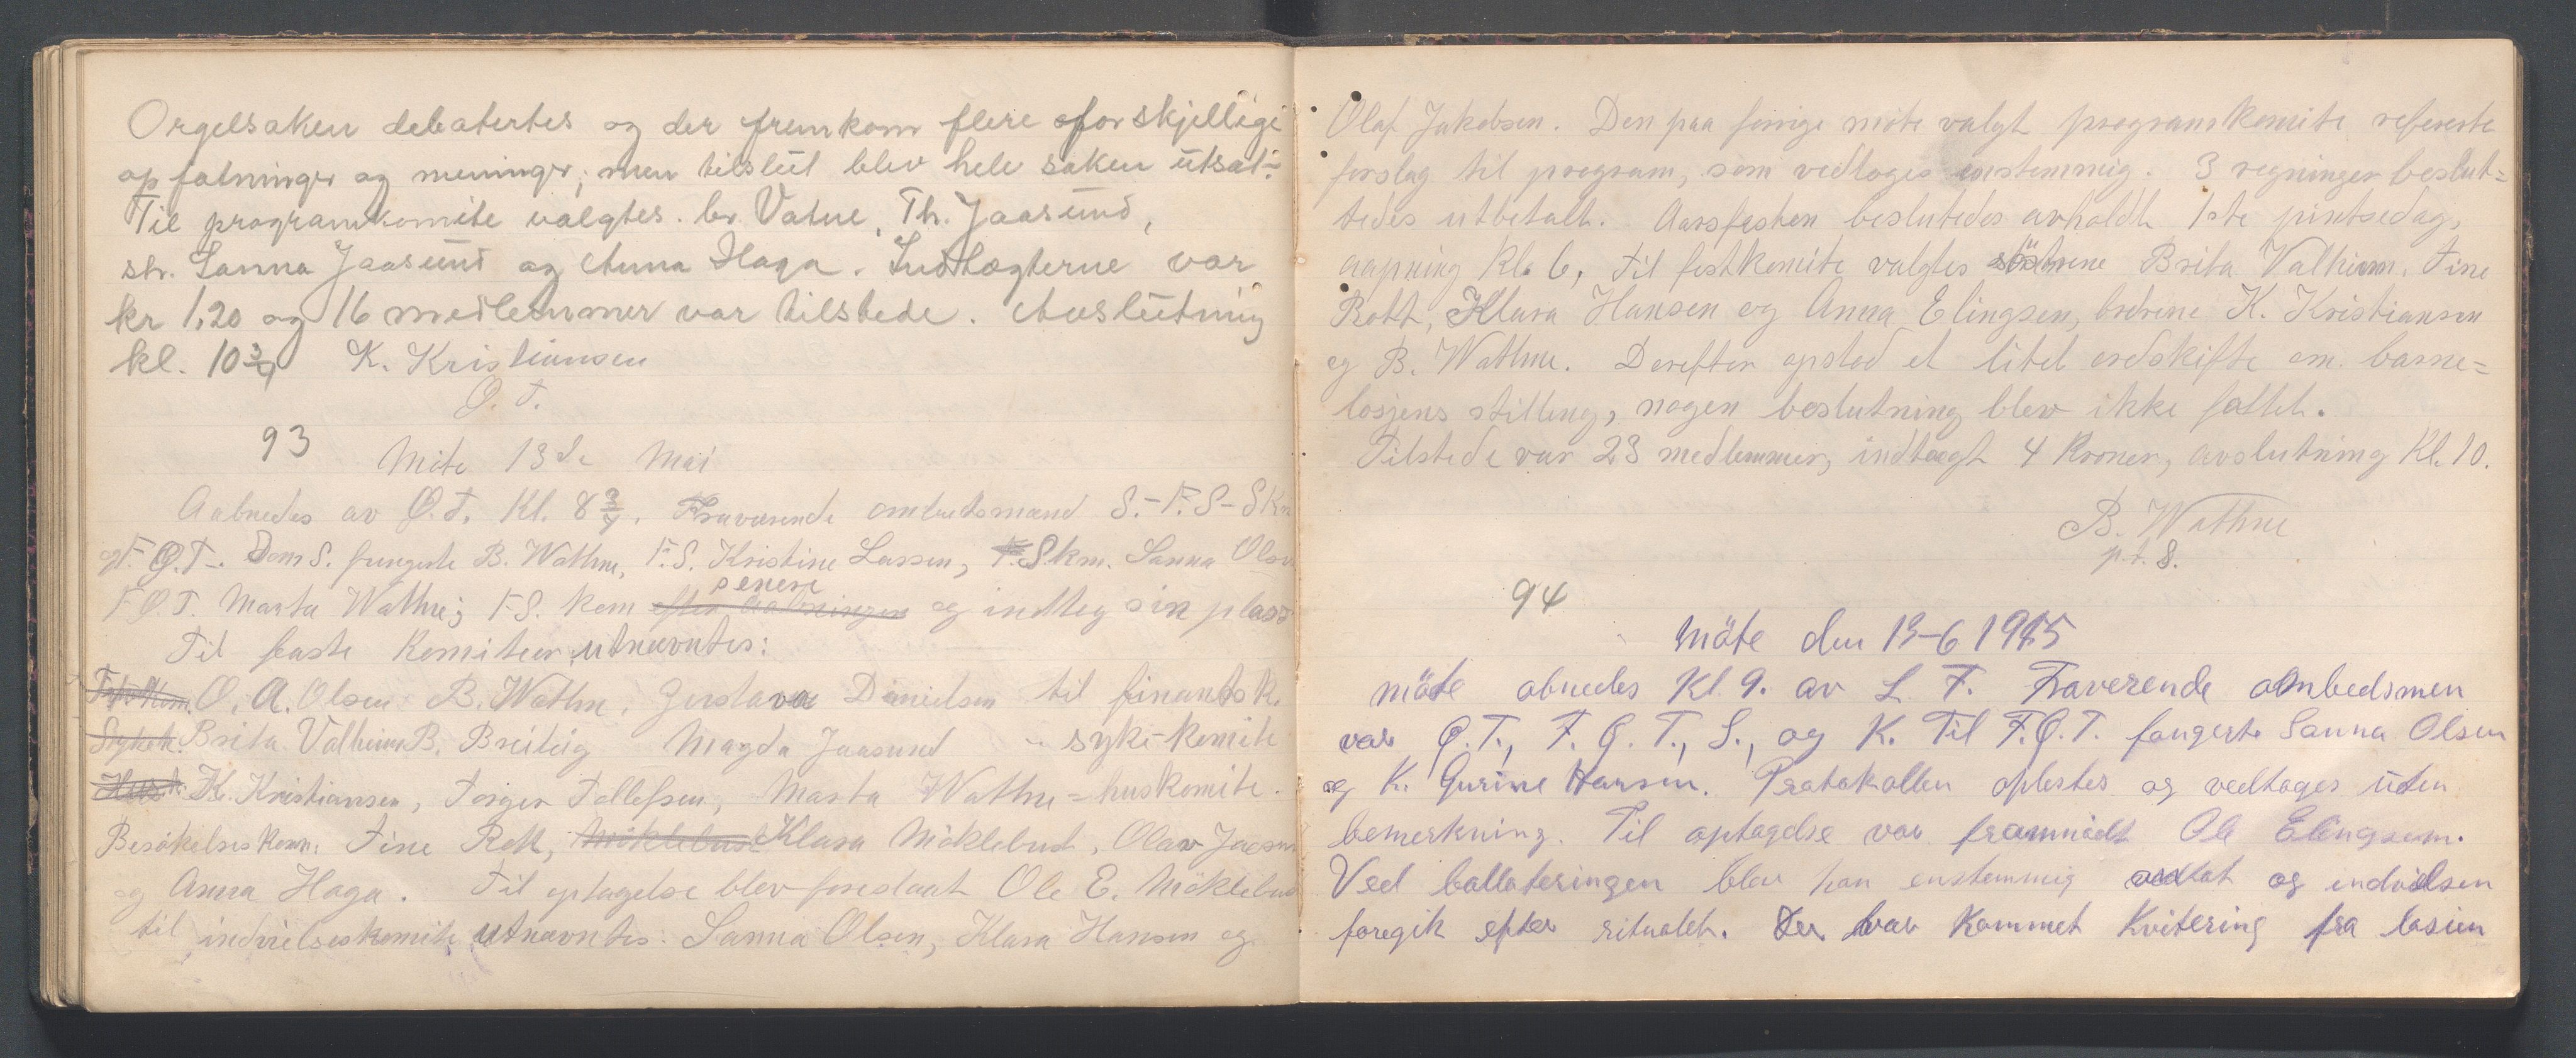 Orgelsaken debatertes og der fremkom flere forskjellige
opfatninger og meninger; men tilslut blev hele saken utsat.
Til programkomite valgtes. br. Vatne, Th. Jaasund,
str. Sanna Jaasund og Anna Haga. Indtægterne var
kr 1,20 og 16 medlemmer var tilstede. Avslutning
kl. 10 3/4 K. Kristiansen
O. T.
93
Möte 13de Mai
Aabnedes av O.T. Kl. 8 3/4. Fraværende ombutsmænd S.-F.S-Skm
og F.O.T-. Som S. fungerte B. Wathne, F.S. Kristine Lassen, Skm. Sanna Olsen
senere
F.O.T. Marta Wathne; F.S. kom efter aabningen og indtog sin plass
Til faste komiteer utnævntes:
O. A. Olsen B. Wathne, Gustava Danielsen til finantsk.
Sykek. Brita Valheim B. Breivig Magda Jaasund - syke-komite
Husk. K. Kristiansen, Torger Tollefsen, Marta Wathne = huskomite.
Besökelseskom: Tine Rott, Möklebust Klara Möklebust, Olav Jaasund
og Anna Haga. Til optagelse blev foreslaat Ole E. Möklebust
til indvielseskomite utnævntes: Sanna Olsen, Klara Hansen og
Olaf Jakobsen. Den paa forrige möte valgt programkomite refererte
forslag til program, som vedtoges enstemmig. 3 regninger beslut=
tedes utbetalt. Aarsfesten beslutedes avholdt 1ste pintsedag,
aapning Kl. 6, til festkomite valgtes söstrene Brita Valheim, Tine
Rott, Klara Hansen og Anna Elingsen, brödrene K. Kristiansen
og B. Wathne. Derefter opstod et litet ordskifte om barne=
losjens stilling, nogen beslutning blev ikke fattet.
Tilstede var 23 medlemmer, indtægt 4 Kroner, avslutning Kl. 10.
B. Wathne
p.t. S.
94
Möte den 13-6 1915
möte abnedes Kl 9. av L. T. Fraverende ombedsmen
var O.T., F.O.T., S., og K. Til F.O.T. fungerte Sanna Olsen
og K. Gurine Hansen. Protokollen oplestes og vedtoges uten
bemerkning. Til optagelse var frammödt Ole Elingsen.
Ved balloteringen blev han enstemmig vedtat og indvielsen
foregik efter ritualet. Der var kommet Kvitering fra losien